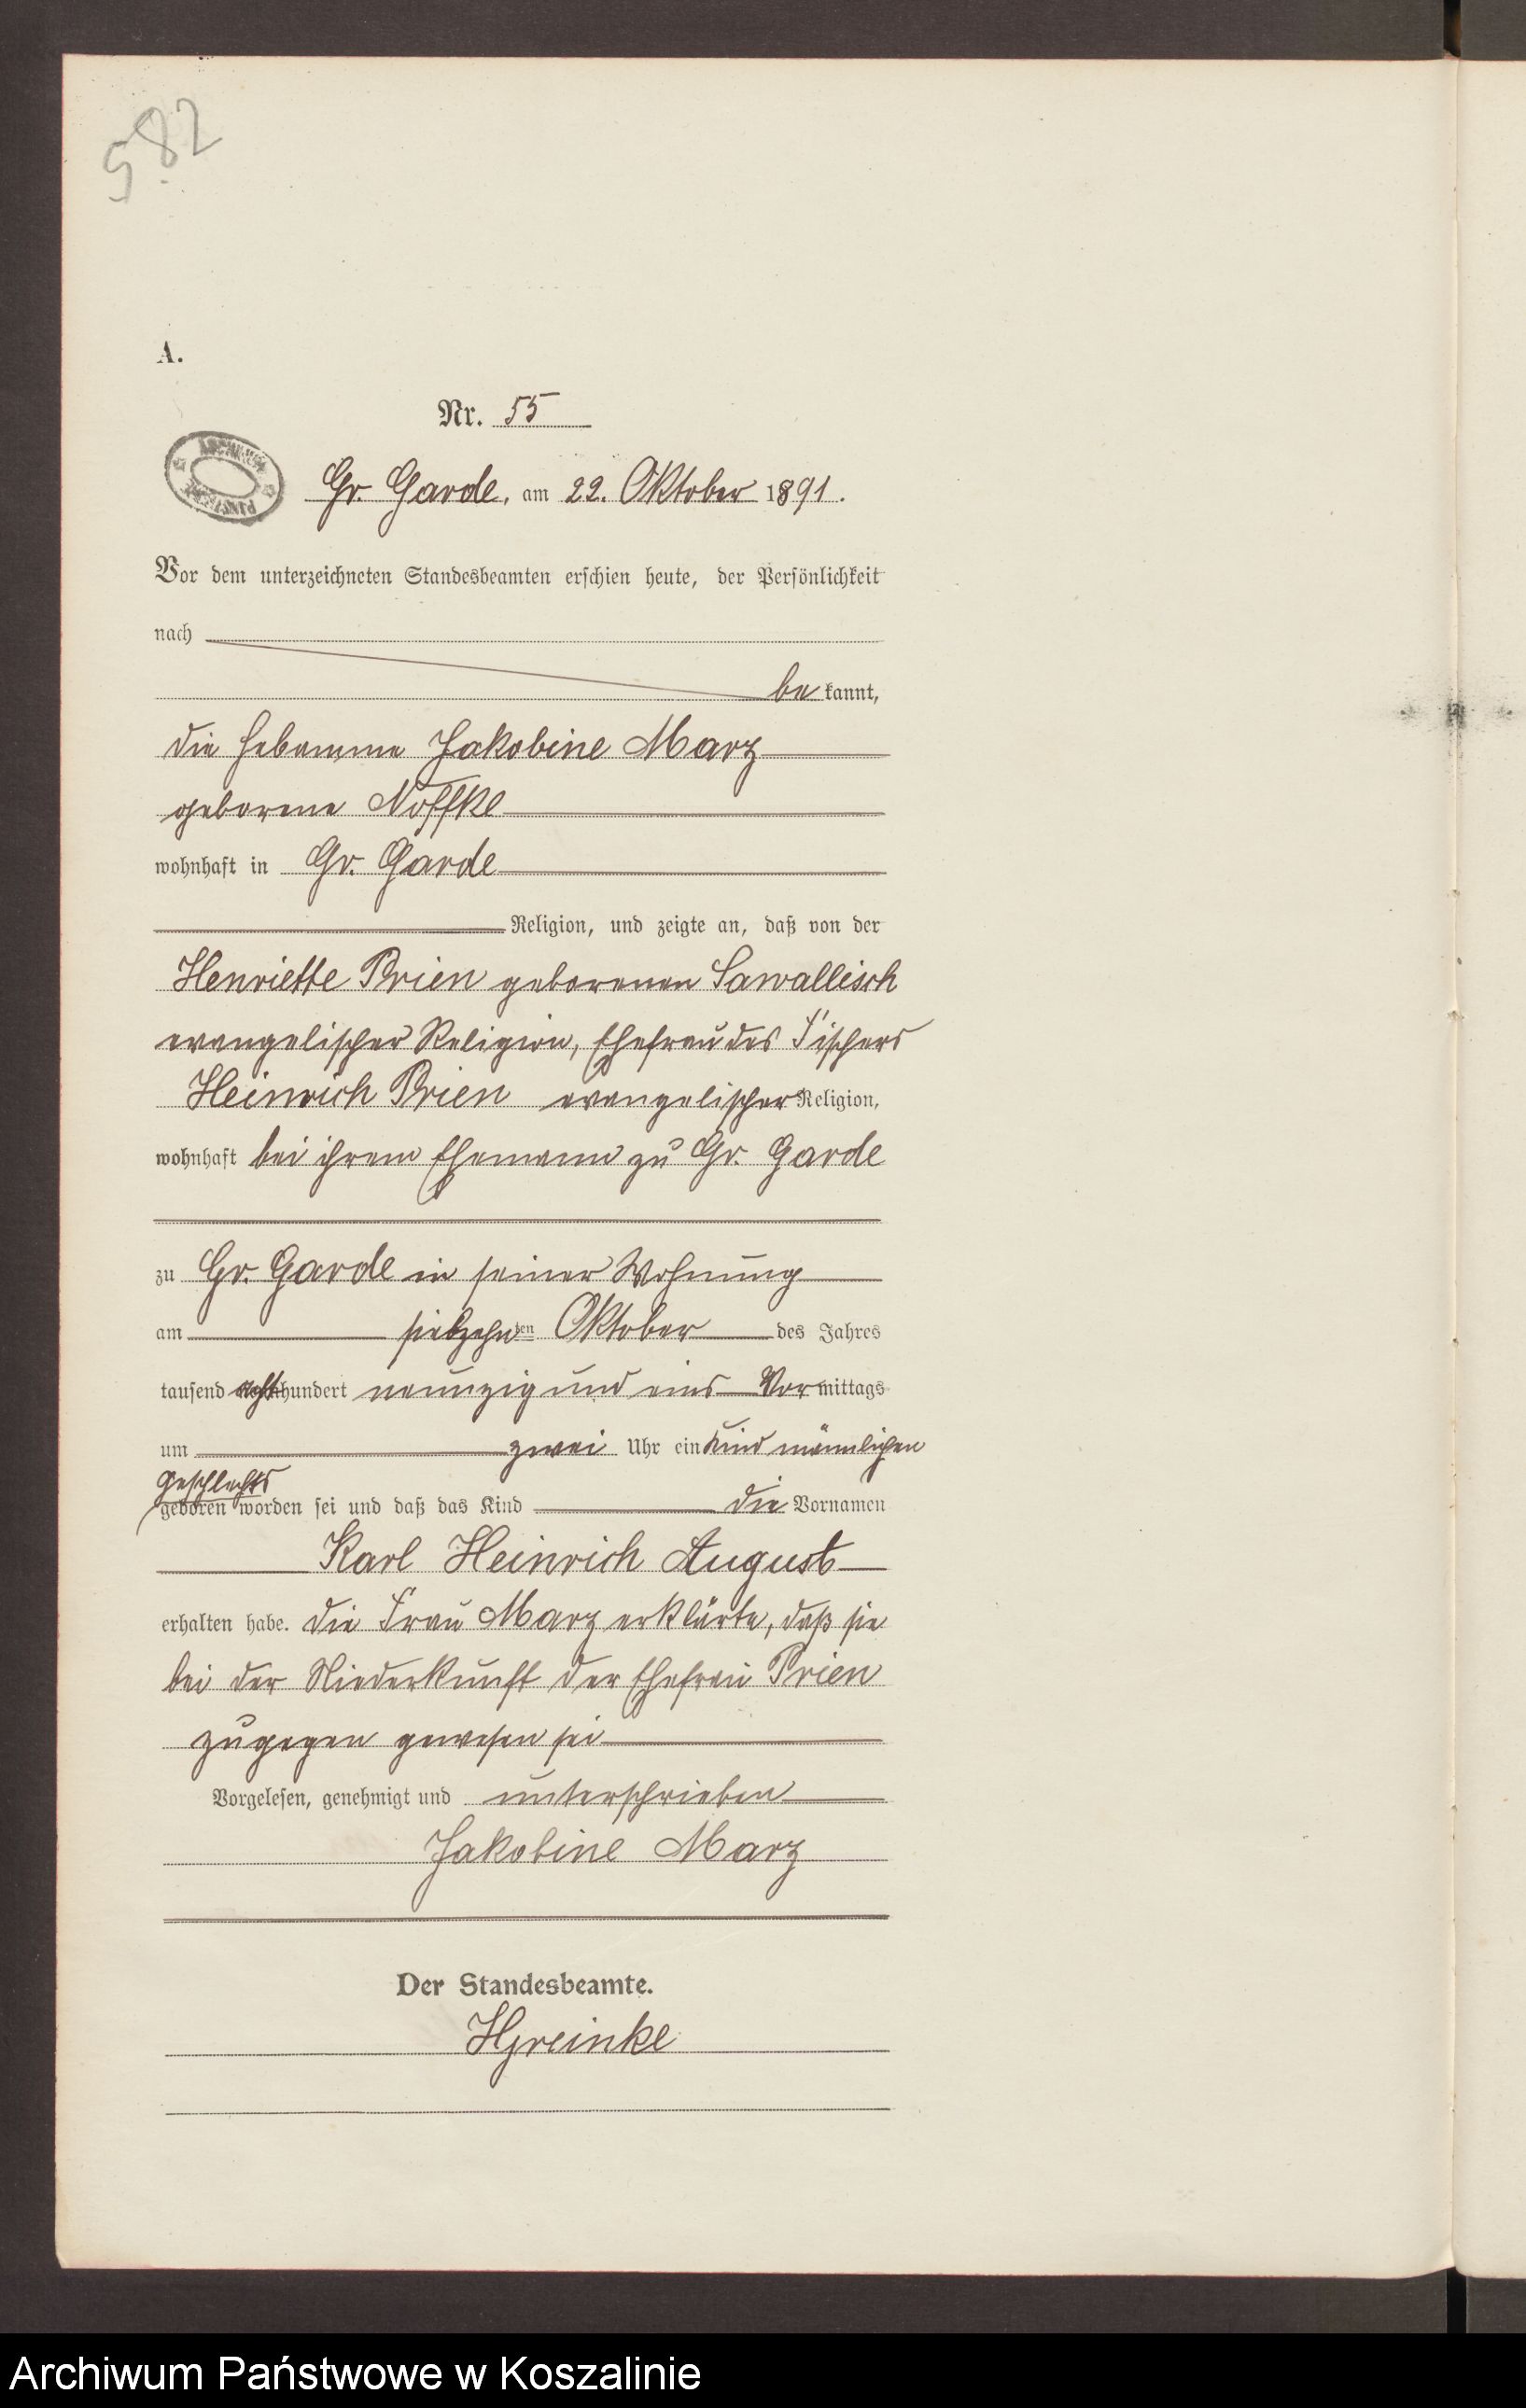 582
A.
Nr. 55
ARCHIWUM PAŃSTWOWE
Gr. Garde, am 22. Oktober 1891.
Vor dem unterzeichneten Standesbeamten erschien heute, der Persönlichkeit
nach
be kannt,
die Hebamme Jakobine Marz
geborene Noffke
wohnhaft in Gr. Garde
Religion, und zeigte an, daß von der
Henriette Prien geborenen Sawallisch
evangelischer Religion, Ehefrau des Fischers
Heinrich Prien evangelischer Religion,
wohnhaft bei ihrem Ehemann zu Gr. Garde
zu Gr. Garde in seiner Wohnung
am siebzehnten Oktober des Jahres
tausend achthundert neunzig und eins Vormittags
um zwei Uhr ein Kind männlichen
Geschlechts
geboren worden sei und daß das Kind die Vornamen
Karl Heinrich August
erhalten habe. Die Frau Marz erklärte, daß sie
bei der Niederkunft der Ehefrau Prien
zugegen gewesen sei
Vorgelesen, genehmigt und unterschrieben
Jakobine Marz
Der Standesbeamte.
HGreinke
Archiwum Państwowe w Koszalinie